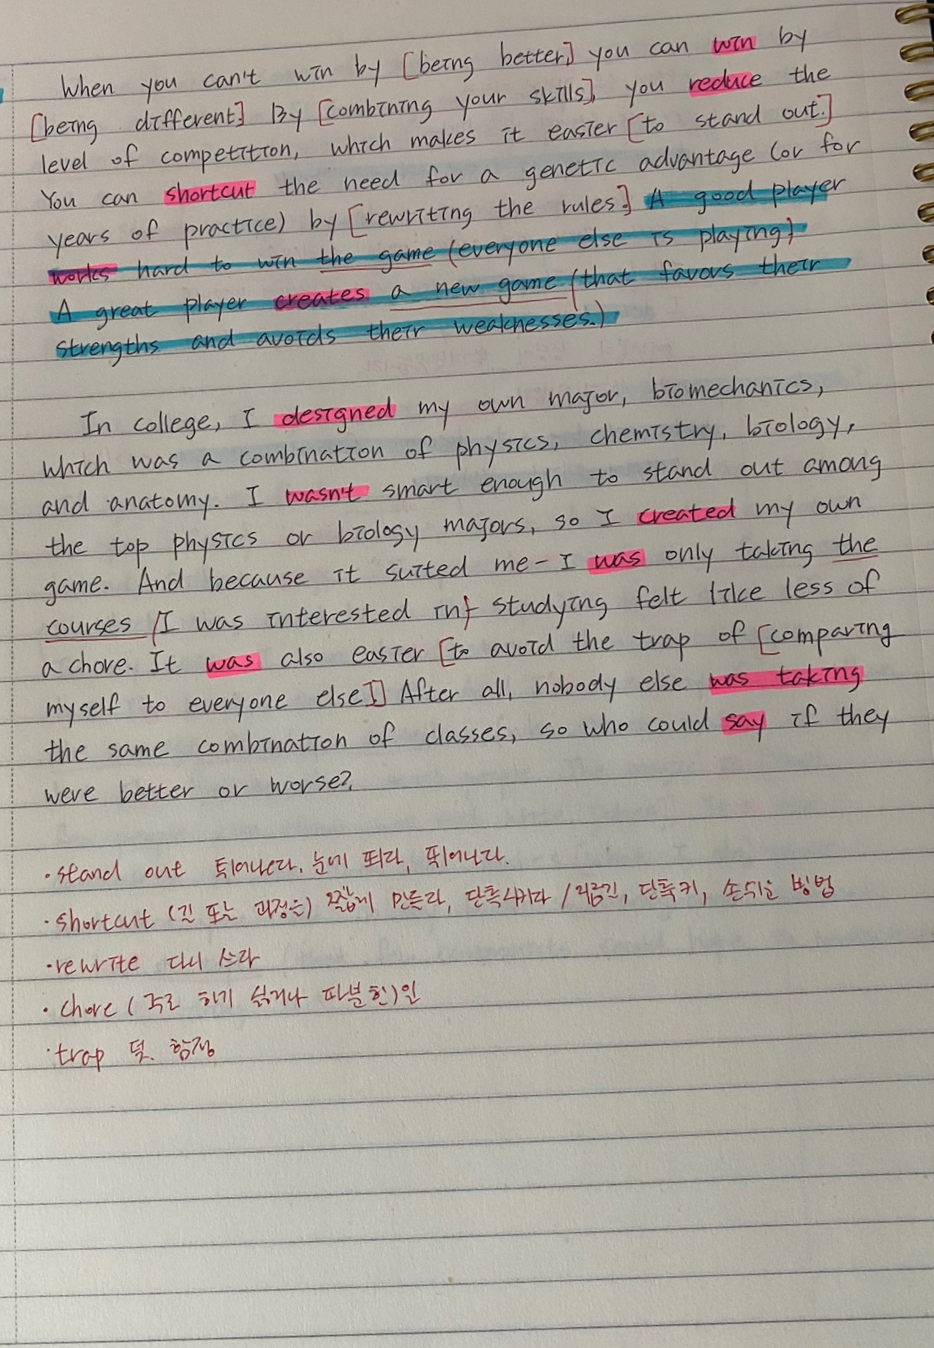 When you can't win by [being better] you can win by
[being different] By [combining your skills], you reduce the
level of competition, which makes it easier [to stand out.]
You can shortcut the need for a genetic advantage (or for
years of practice) by [rewriting the rules.] A good player
works hard to win the game (everyone else is playing)
A great player creates a new game (that favors their
strengths and avoids their weaknesses.)
In college, I designed my own major, biomechanics,
which was a combination of physics, chemistry, biology,
and anatomy. I wasn't smart enough to stand out among
the top physics or biology majors, so I created my own
game. And because it suited me - I was only taking the
courses (I was interested in) studying felt like less of
a chore. It was also easier [to avoid the trap of [comparing
myself to everyone else]] After all, nobody else was taking
the same combination of classes, so who could say if they
were better or worse?
· stand out 튀어나오다, 눈에 띄다, 뛰어나다.
· shortcut (길 또는 과정을) 짧게 만들다, 단축시키다 / 지름길, 단축키, 손쉬운 방법
· rewrite 다시 쓰다
· chore (주로 하기 싫거나 따분한) 일
· trap 덫. 함정